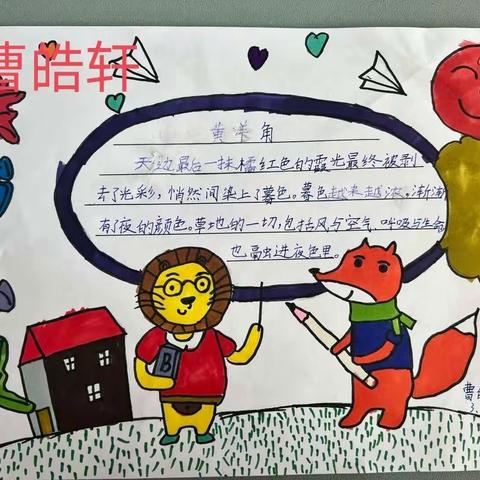 曹皓轩
黄羊角
天边最后一抹橘红色的霞光最终被剥
去了光彩，悄然间染上了暮色。暮色越来越浓，渐渐
有了夜的颜色。草地的一切，包括风与空气、呼吸与生命
也融进夜色里。
B
曹
3.